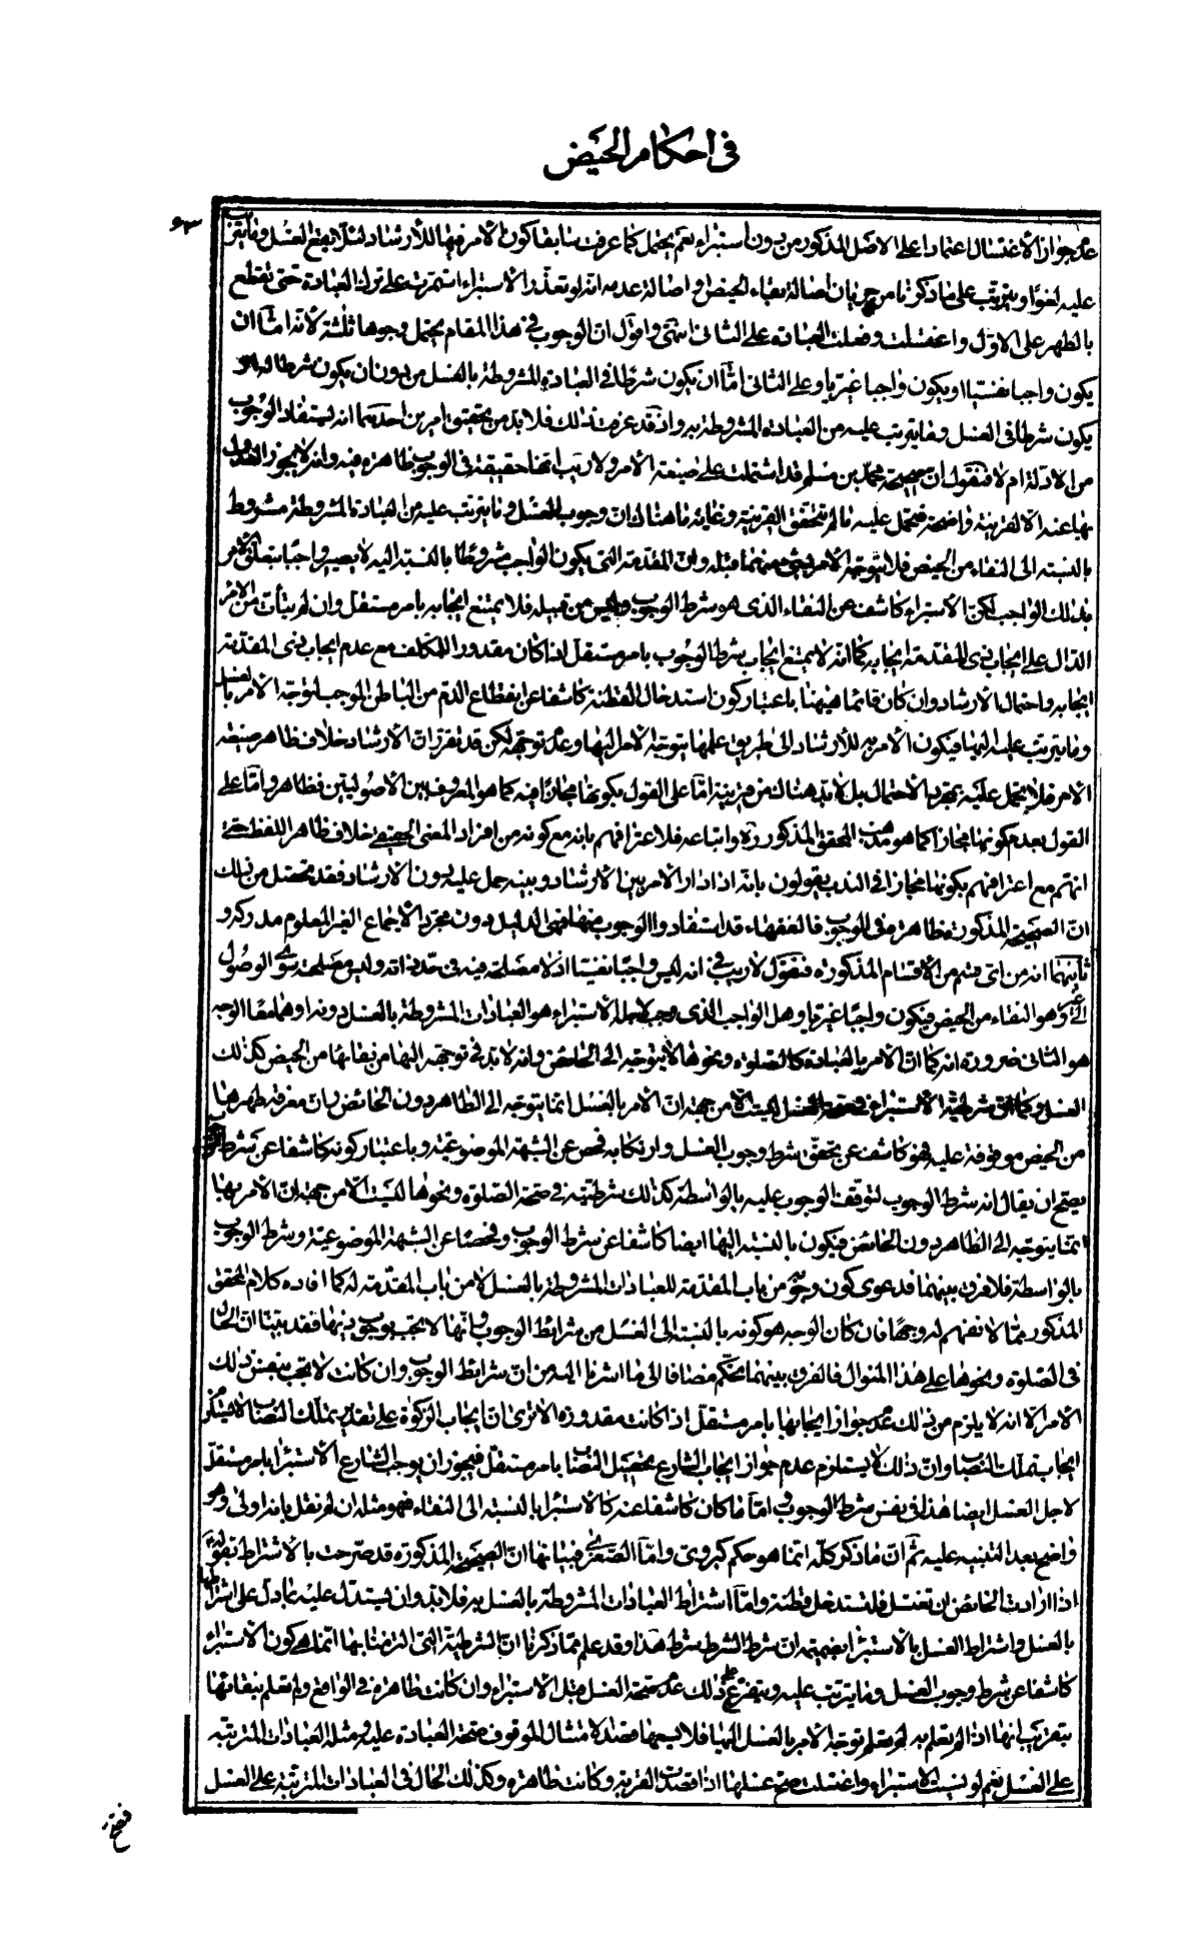 في احكام الحيض
٦٣
عدم جواز الاغتسال اعتمادا على الاصل المذكور من دون استبراء نعم يحتمل كما عرفت سابقا كون الامر فيها للارشاد لئلا يقع الغسل وما يترتب
عليه لغوا ويترتب على ما ذكرنا من جريان اصالة بقاء الحيض واصالة عدمه انه لو تعذر الاستبراء استمرت على ترك العبادة حتى تقطع
بالطهر على الاول واغتسلت وفعلت العبادة على الثاني انتهى واقول ان الوجوب في هذا المقام يحتمل وجوها ثلثة لانه اما ان
يكون واجبا نفسيا او يكون واجبا غيريا وعلى الثاني اما ان يكون شرطا في العبادة المشروطة بالغسل من دون ان يكون شرطا له او
يكون شرطا في الغسل وما يترتب عليه من العبادة المشروطة به واذ قد عرفت ذلك فلا بد من تحقيق امرين احدهما انه يستفاد الوجوب
من الادلة ام لا فنقول ان صحيحة محمد بن مسلم قد اشتملت على صيغة الامر ولا ريب انها حقيقة في الوجوب ظاهرة فيه وانه لا يجوز العدول
بها عنه الا لقرينة واضحة فيحمل عليه ما لم تتحقق القرينة وغاية ما هناك ان وجوب الغسل وما يترتب عليه من العبادة المشروطة مشروط
بالنسبة الى النقاء من الحيض فلا يتوجه الامر بشيء منهما قبله وان المقدمة التي يكون الواجب مشروطا بالنسبة اليه لا يصير واجبا بتعلق الامر
بذلك الواجب لكن الاستبراء كاشف عن النقاء الذي هو شرط الوجوب وليس من قبيله فلا يمتنع ايجابه بامر مستقل وان لم يتأت من الامر
الدال على ايجاب ذي المقدمة ايجابه كما انه لا يمتنع ايجاب شرط الوجوب بامر مستقل اذا كان مقدورا للمكلف مع عدم ايجاب ذي المقدمة
ايجابه واحتمال الارشاد وان كان قائما هيهنا باعتبار كون استدخال القطنة كاشفا عن انقطاع الدم من الباطن الموجب لتوجه الامر بالغسل
وما يترتب عليه اليها فيكون الامر به للارشاد الى طريق علمها بتوجه الامر اليها وعدم توجهه لكن قد تقرر ان الارشاد خلاف ظاهر صيغة
الامر فلا يحمل عليه بمجرد الاحتمال بل لا بد هناك من قرينة اما على القول بكونها مجازا فيه كما هو المعروف بين الاصوليين فظاهر واما على
القول بعدم كونها مجازا كما هو مذهب المحقق المذكور ره واتباعه فلاعترافهم بانه مع كونه من افراد المعنى الحقيقي خلاف ظاهر اللفظ حتى
انهم مع اعترافهم بكونها مجازا في الندب يقولون بانه اذا دار الامر بين الارشاد وبينه حمل عليه دون الارشاد فقد تحصل من ذلك
ان الصحيحة المذكورة ظاهرة في الوجوب فالفقهاء قد استفادوا الوجوب منها فهي الدليل دون مجرد الاجماع الغير المعلوم مدركه و
ثانيهما انه من اي قسم من الاقسام المذكورة فنقول لا ريب في انه ليس واجبا نفسيا اذ لا مصلحة فيه في حد ذاته وليس مصلحة سوى الوصول
الى غيره وهو النقاء من الحيض فيكون واجبا غيريا وهل الواجب الذي وجب لاجله الاستبراء هو العبادات المشروطة بالغسل دونه او هما معا الوجه
هو الثاني ضرورة انه كما ان الامر بالعبادة كالصلوة ونحوها لا يتوجه الى الحائض وانه لا بد في توجهه اليها من نقائها من الحيض كذلك
الغسل وكما ان شرطية الاستبراء في صحة الغسل ليست الا من جهة ان الامر بالغسل انما يتوجه الى الطاهر دون الحائض وان معرفة طهرها
من الحيض موقوفة عليه فهو كاشف عن تحقق شرط وجوب الغسل وارتكابه فحص عن الشبهة الموضوعية وباعتبار كونه كاشفا عن شرط الوجوب
يصح ان يقال انه شرط الوجوب لتوقف الوجوب عليه بالواسطة كذلك شرطيته في صحة الصلوة ونحوها ليست الا من جهة ان الامر بها
انما يتوجه الى الطاهر دون الحائض فيكون بالنسبة اليها ايضا كاشفا عن شرط الوجوب وفحصا عن الشبهة الموضوعية وشرط الوجوب
بالواسطة فلا فرق بينهما فدعوى كون وجوبه من باب المقدمة للعبادات المشروطة بالغسل لا من باب المقدمة له كما افاده كلام المحقق
المذكور مما لا نفهم له وجها فان كان الوجه هو كونه بالنسبة الى الغسل من شرائط الوجوب وانها لا تجب بوجوب ذيها فقد بينا ان الحال
في الصلوة ونحوها على هذا المنوال فالفرق بينهما تحكم مضافا الى ما اشرنا اليه من ان شرائط الوجوب وان كانت لا تجب بنفس ذلك
الامر الا انه لا يلزم من ذلك عدم جواز ايجابها بامر مستقل اذا كانت مقدورة الا ترى ان ايجاب الزكوة على تقدير تملك النصاب لا يستلزم
ايجاب تملك النصاب وان ذلك لا يستلزم عدم جواز ايجاب الشارع تحصيل النصاب بامر مستقل فيجوز ان يوجب الشارع الاستبراء بامر مستقل
لاجل الغسل ايضا هذا في نفس شرط الوجوب واما ما كان كاشفا عنه كالاستبراء بالنسبة الى النقاء فهو مثله ان لم نقل بانه اولى وهو
واضح بعد التنبيه عليه ثم ان ما ذكر كله انما هو حكم كبروي واما الصغرى فبيانها ان الصحيحة المذكورة قد صرحت بالاشتراط بقوله
اذا ارادت الحائض ان تغتسل فلتستدخل قطنة واما اشتراط العبادات المشروطة بالغسل به فلا بد وان يستدل عليه بما دل على اشتراطها
بالغسل واشتراط الغسل بالاستبراء بضميمة ان شرط الشرط شرط هذا وقد علم مما ذكرنا ان الشرطية التي التزمنا بها انما هي كون الاستبراء
كاشفا عن شرط وجوب الغسل وما يترتب عليه ويتفرع على ذلك عدم صحة الغسل قبل الاستبراء وان كانت طاهرة في الواقع ولم تعلم بنقائها
بتقريب انها اذا لم تعلم به لم تعلم توجه الامر بالغسل اليها فلا يسعها قصد الامتثال الموقوف صحة العبادة عليه ومثله العبادات المترتبة
على الغسل نعم لو نسيت الاستبراء واغتسلت صح غسلها اذا قصدت القربة وكانت طاهرة وكذلك الحال في العبادات المترتبة على الغسل
فتصح